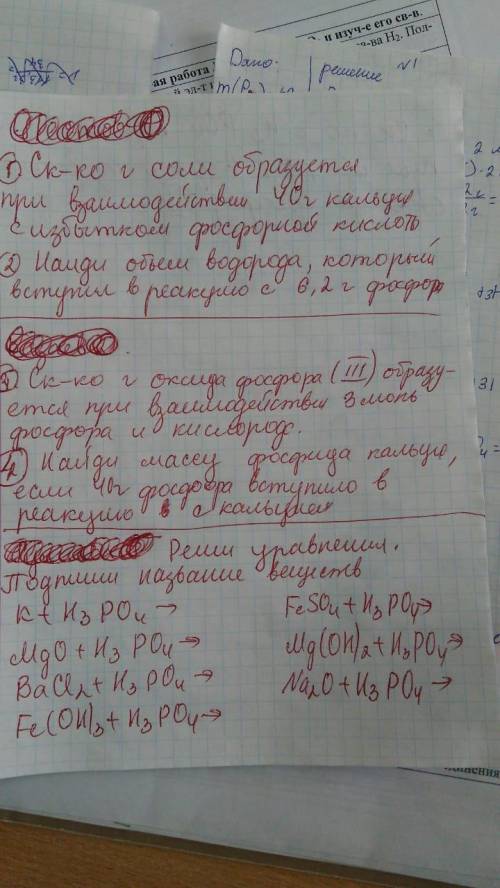 ая работа
и изуч-е его св-в.
ва H₂. Пол-
Дано.
решение №1
① Ск-ко г соли образуется
при взаимодействии 40г кальция
с избытком фосфорной кислоты
② Найди объем водорода, который
вступил в реакцию с 6,2 г фосфора
3 Ск-ко г оксида фосфора (III) образу-
ется при взаимодействии 3 моль
фосфора и кислорода.
4 Найди массу фосфида кальция,
если 40г фосфора вступило в
реакцию с кальцием
Реши уравнения.
Подпиши название веществ
K + H₃PO₄ →
FeSO₄ + H₃PO₄ →
MgO + H₃PO₄ →
Mg(OH)₂ + H₃PO₄ →
BaCl₂ + H₃PO₄ →
Na₂O + H₃PO₄ →
Fe(OH)₃ + H₃PO₄ →